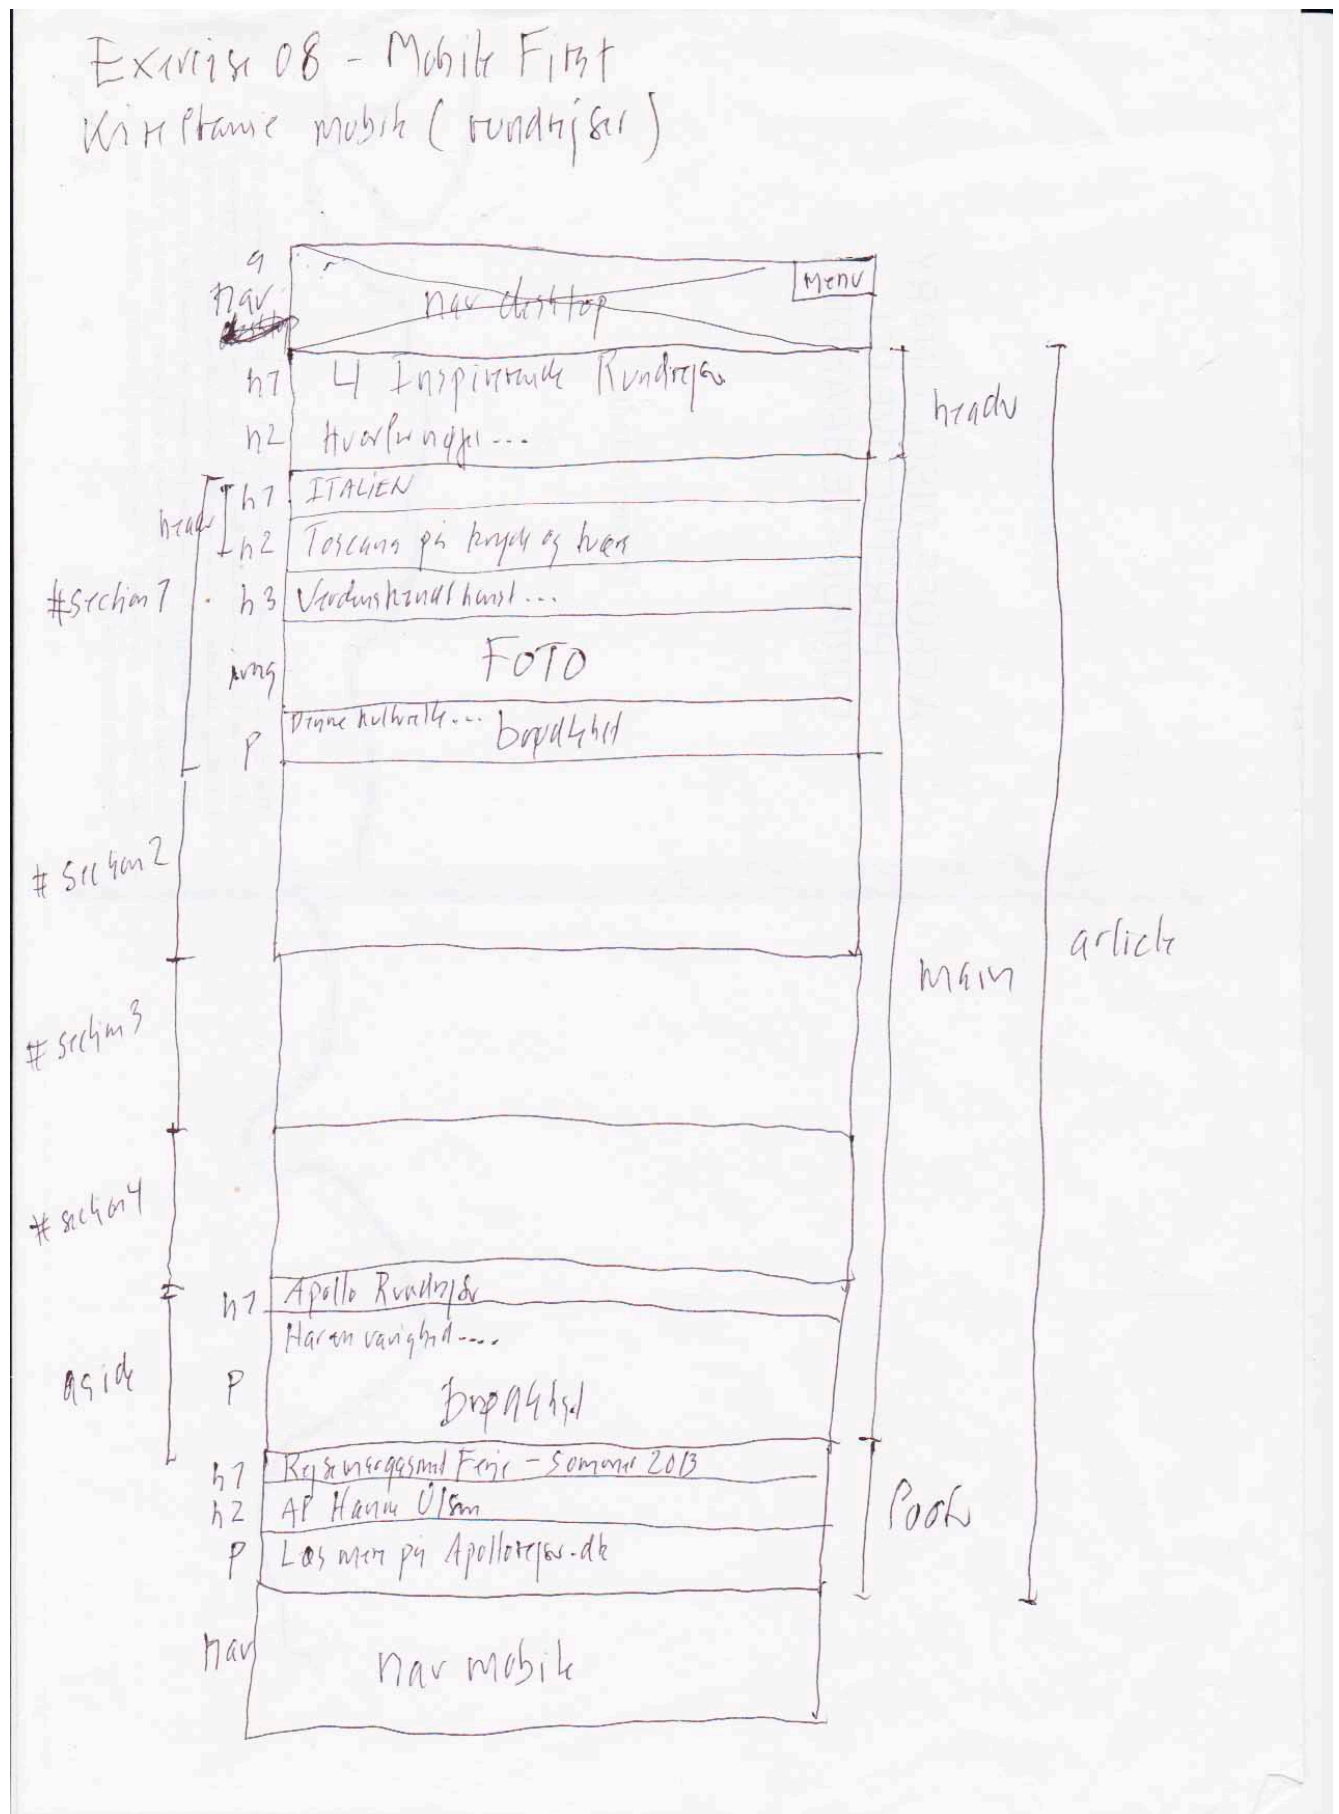 Exercise 08 - Mobile First
Wireframe mobile (rundrejser)
a
nav
desktop
nav desktop
Menu
h1 4 Inspirerende Rundrejser
h2
header
h1 ITALIEN
header
h2 Toscana på kryds og tværs
#section1
h3 Verdenskendt kunst...
img FOTO
Denne kulturelle....
p brødtekst
#section2
article
main
#section3
#section4
h1 Apollo Rundrejser
Har en varighed....
aside
p Brødtekst
h1 Ferie - Sommer 2013
h2 Af Hanne Olsen
footer
p Læs mere på Apollorejser.dk
nav nav mobile